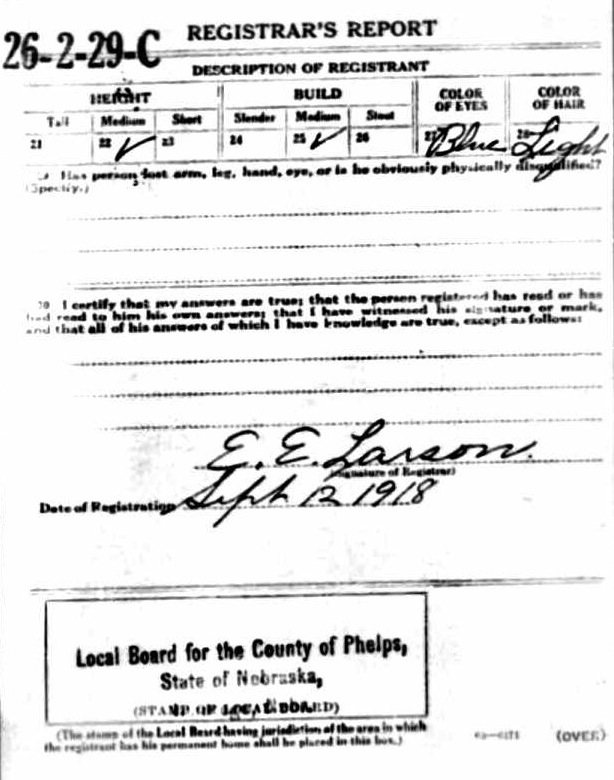 26-2-29-C REGISTRAR'S REPORT
DESCRIPTION OF REGISTRANT
HEIGHT BUILD COLOR OF EYES COLOR OF HAIR
Tall Medium Short Slender Medium Stout
21 22 ✓ 23 24 25 ✓ 26 27 Blue 28 Light
29 Has person lost arm, leg, hand, eye, or is he obviously physically disqualified?
(Specify.)
30 I certify that my answers are true; that the person registered has read or has
had read to him his own answers; that I have witnessed his signature or mark,
and that all of his answers of which I have knowledge are true, except as follows:
E. E. Larson.
(Signature of Registrar)
Date of Registration Sept 12 1918
Local Board for the County of Phelps,
State of Nebraska,
(STAMP OF LOCAL BOARD)
(The stamp of the Local Board having jurisdiction of the area in which
the registrant has his permanent home shall be placed in this box.)
(OVER)